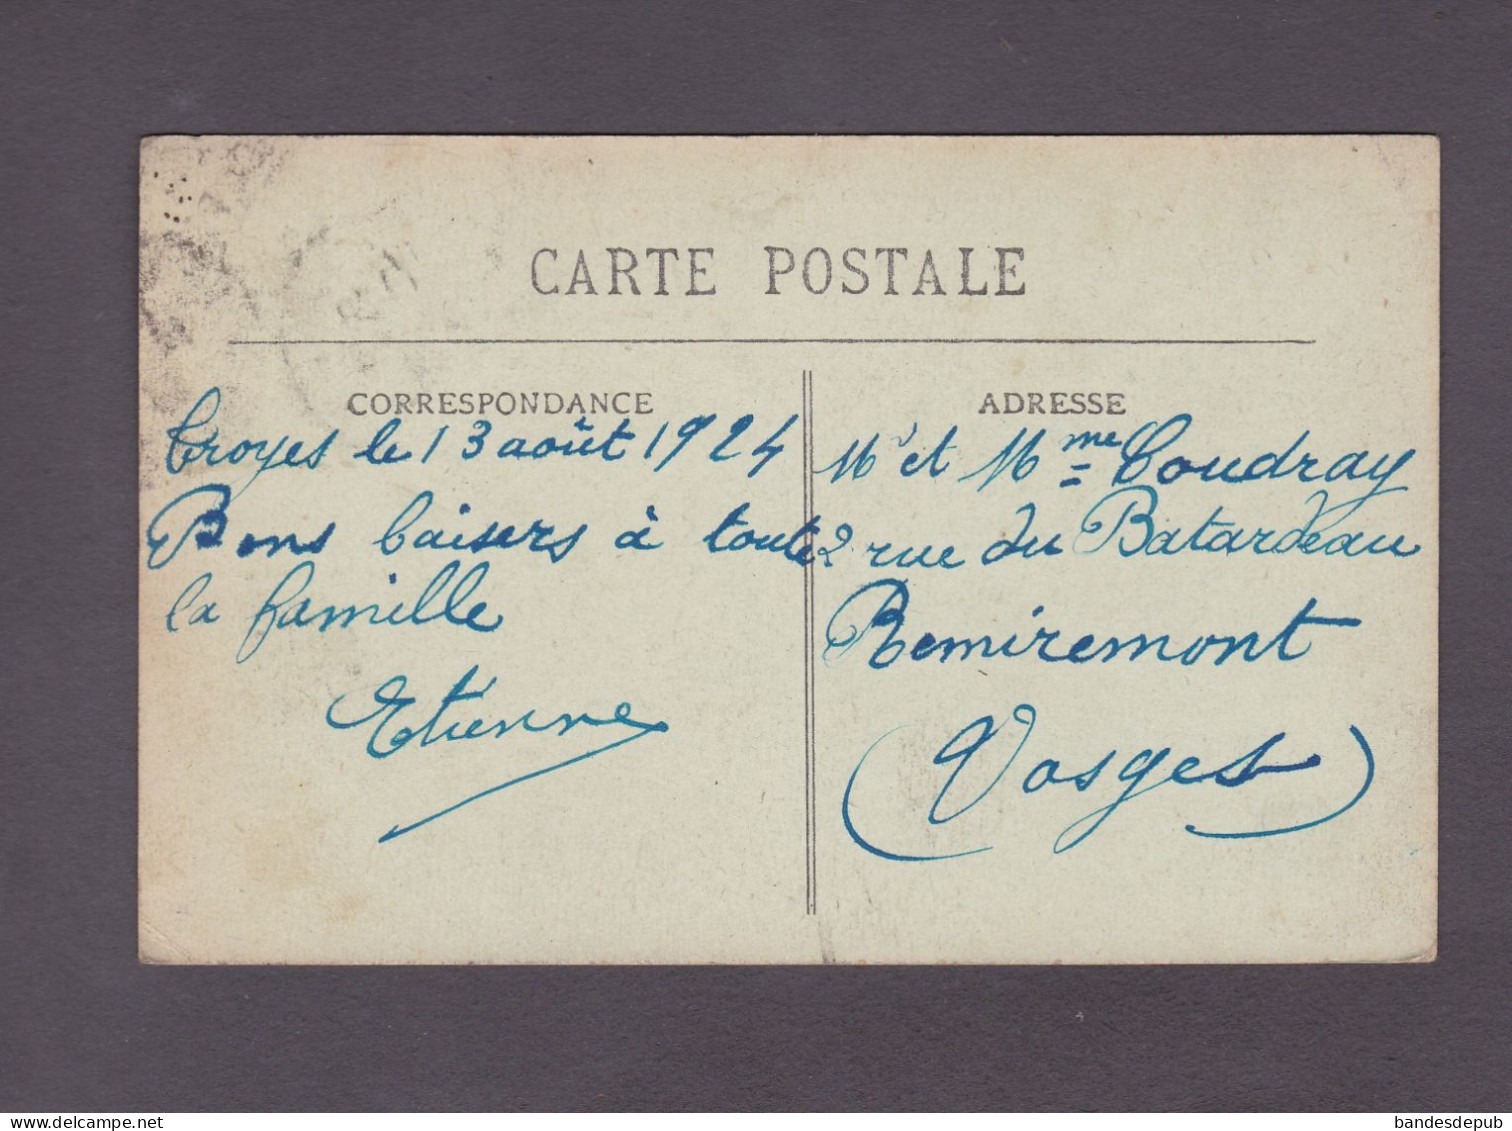 CARTE POSTALE
CORRESPONDANCE
Troyes le 13 août 1924
Bons baisers à toute
la famille
Etienne
ADRESSE
Mr et Mme Coudray
2 rue du Batardeau
Remiremont
(Vosges)
delcampe.net
bandesdepub